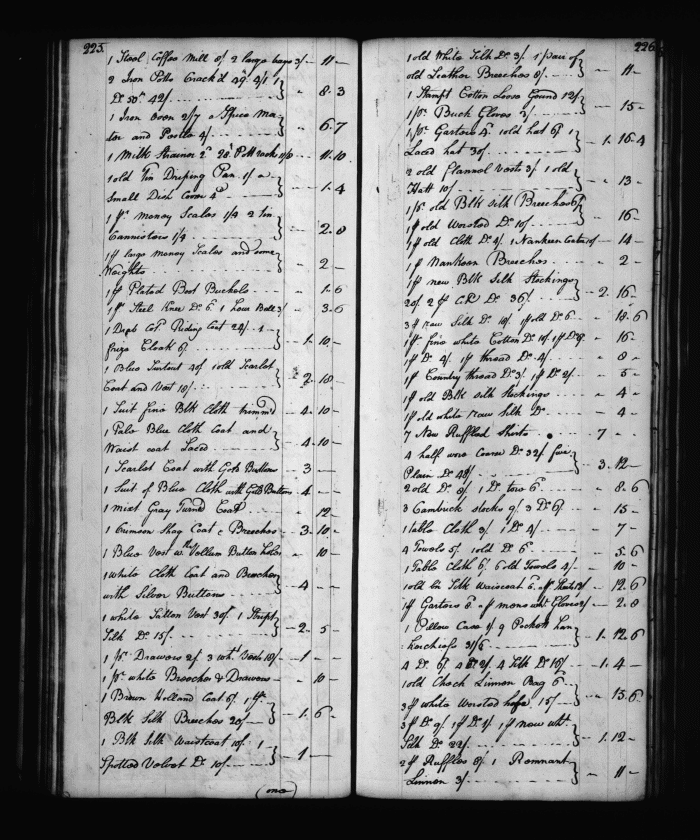 225.
1 Steel Coffee Mill 8/ 2 large bags 3/ - 11 -
2 Iron Potts Crack'd 49. 4/1 1
Do 50w 42/ - 8.3
1 Iron oven 2/7 a Spice Mo
tor and Pestle 4/ - 6.7
1 Milk Strainer 2d 20 Pott racks - 11.10
1 old Tin Driping Pan 1/ a
Small Dish Cover 4d - 1.4
1 pr money Scales 1/4 2 Tin
Cannisters 1/4 - 2.8
1 pr large money Scales and some
Weights - 2 -
1 pr Plated Boot Buckels - 1.6
1 pr Steel Knee Do 6. 1 hour Bell 3/ - 3.6
1 Drab Cold Riding Coat 24/. 1
frize Cloak 6/ - 1.10 -
1 Blue Surtout 40/ 1 old Scarlet
Coat and Vest 18/ - 2.18 -
1 Suit fine Blk Cloth trimm'd - 4.10 -
1 Pale Blue Cloth Coat and
Waist coat Laced - 4.10 -
1 Scarlet Coat with Gold Buttons - 3 -
1 Suit of Blue Cloth with Gold Buttons - 4 -
1 mixt Gray Turned Coat - 12 -
1 Crimson Shag Coat & Breeches - 3.10 -
1 Blue Vest wth Vellum Button holes - 10 -
1 White Cloth Coat and Breeches
with Silver Buttons - 4 -
1 white Sattan Vest 30/ 1 Stript
Silk Do 15/ - 2.5 -
1 pr. Drawers 2/ 3 wht. Vests 18/ - 1 -
1 pr white Breeches & Drawers - 10 -
1 Brown Holland Coat 6/. 1 pr.
Blk Silk Breeches 20/ - 1.6 -
1 Blk Silk Waistcoat 10/. 1
Spotted Velvet Do 10/ - 1 -
(one)
226
1 old White Silk Do 3/. 1 pair of
old Leather Breeches 8/ - 11 -
1 Stampt Cotton Loose Gound 12/
1 pr. Buck Gloves 3/ - 15 -
1 pr. Garters 4d. 1 old hat 6/ 1
Laced hat 30/ - 1.16.4
2 old flannel Vests 3/ 1 old
Hatt 10/ - 13 -
1 pr. old Blk silk Breeches 6/
1 pr old Worsted Do 10/ - 16 -
1 pr old Cloth Do 4/. 1 Nankeen Coat 10/ - 14 -
1 pr Nankeen Breeches - 2 -
1 pr new Blk Silk Stockings
20/ 2 pr Do 36/ - 2.16 -
3 pr raw Silk Do 18/. 1 pr old Do 6 - 18.6
1 pr. fine white Cotton Do 10/. 1 pr Do 6 - 16 -
1 pr Do 4/. 1 pr thread Do 4/ - 8 -
1 pr Country thread Do 3/. 1 pr Do 2/ - 5 -
1 pr old Blk silk Stockings - 4 -
1 pr old white raw Silk Do - 4 -
7 New Ruffled Shirts - 7 - -
4 half wore Coarse Do 32/. five
Plain Do 40/ - 3.12 -
2 old Do 8/. 1 Do. tore 6 - 8.6
3 Cambrick stocks 9/. 3 Do 6/. - 15 -
1 table Cloth 3/. 1 Do 4/ - 7 -
4 Towels 5/. 1 old Do 6 - 5.6
1 Table Cloth 6/. 6 old Towels 4/ - 10 -
1 old Silk Waiscoat 6. - 12.6
1 pr Garters 8d. a pr mens wht Gloves 2/ - 2.8
1 Pillow Case 1/. 9 Pockett han
kerchiefs 31/6 - 1.12.6
4 Do 6/ 4 Do 2/. 4 Silk Do 16/ - 1.4 -
1 old Check Linnen Bag 6d
3 pr white Worsted hose 15/ - 15.6
3 pr Do 9/. 1 pr Do 1/. 1 pr new wht.
Silk Do 22/ - 1.12 -
2 pr Ruffles 8/. 1 Remnant
Linnen 3/ - 11 -